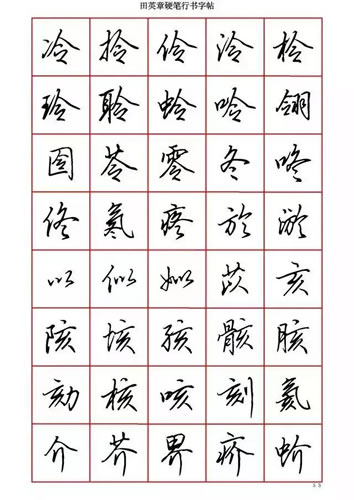 田英章硬笔行书字帖
冷 拎 伶 泠 柃
玲 聆 蛉 呤 翎
囹 苓 零 冬 咚
佟 氡 疼 於 淤
以 似 姒 苡 亥
陔 垓 孩 骸 胲
劾 核 咳 刻 氦
介 芥 界 疥 蚧